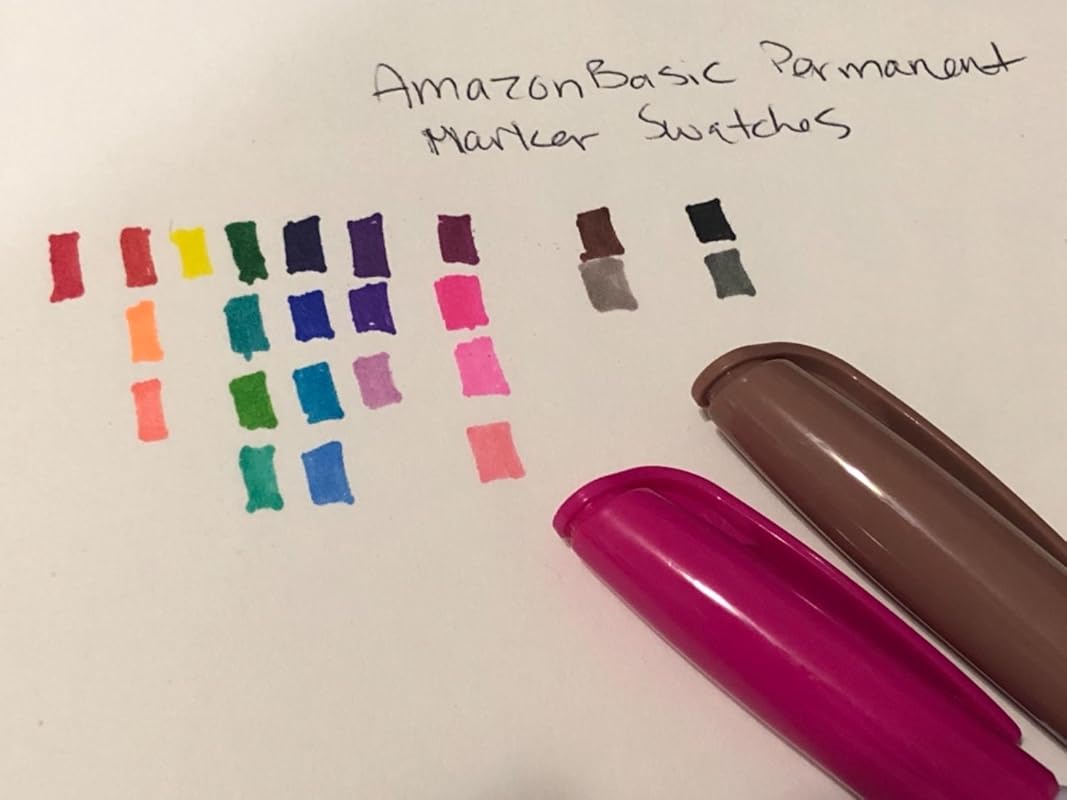 AmazonBasic Permanent
Marker Swatches